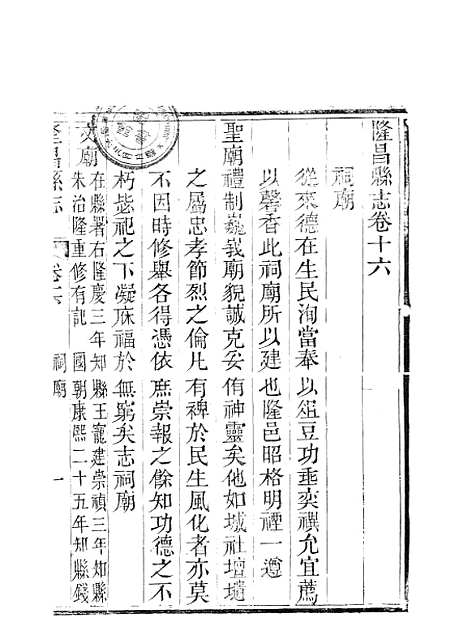 隆昌縣志卷十六
祠廟
從來德在生民洵當奉以俎豆功垂奕禩允宜薦
以馨香此祠廟所以建也隆邑昭格明禋一遵
聖廟禮制巍我廟貌誠克妥侑神靈矣他如城社壇壝
之屬忠孝節烈之倫凡有裨於民生風化者亦莫
不因時修舉各得憑依庶崇報之餘知功德之不
朽毖祀之下凝庥福於無窮矣志祠廟
文廟 在縣署右隆慶三年知縣王寵建崇禎三年知縣
朱治隆重修有記 國朝康熙二十五年知縣錢
隆昌縣志 卷十六 祠廟 一